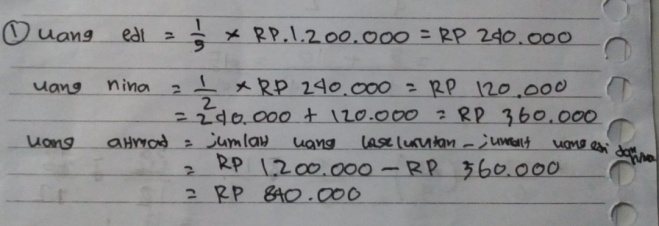 ① uang edi = 1/5 × RP.1.200.000 = RP 240.000
uang nina = 1/2 × RP 240.000 = RP 120.000
= 240.000 + 120.000 = RP 360.000
uang ahmad = jumlah uang keseluruhan - jumlah uang edi dan nina
= RP 1.200.000 - RP 360.000
= RP 840.000